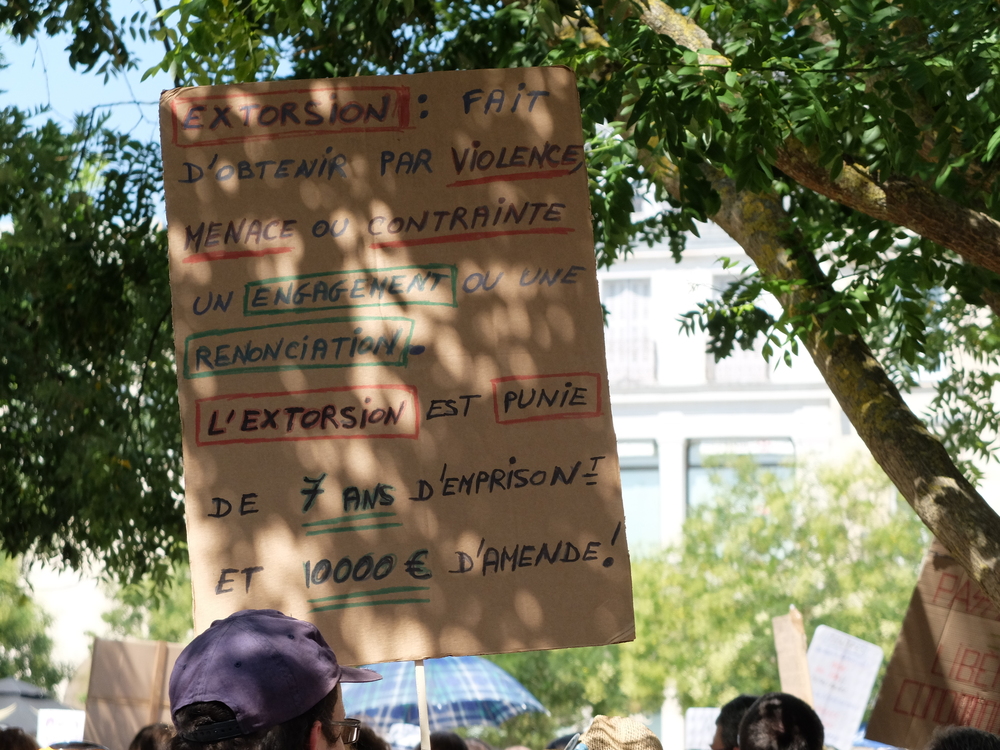 EXTORSION : FAIT
D'OBTENIR PAR VIOLENCE,
MENACE OU CONTRAINTE
UN ENGAGEMENT OU UNE
RENONCIATION.
L'EXTORSION EST PUNIE
DE 7 ANS D'EMPRISONT
ET 10000 € D'AMENDE!